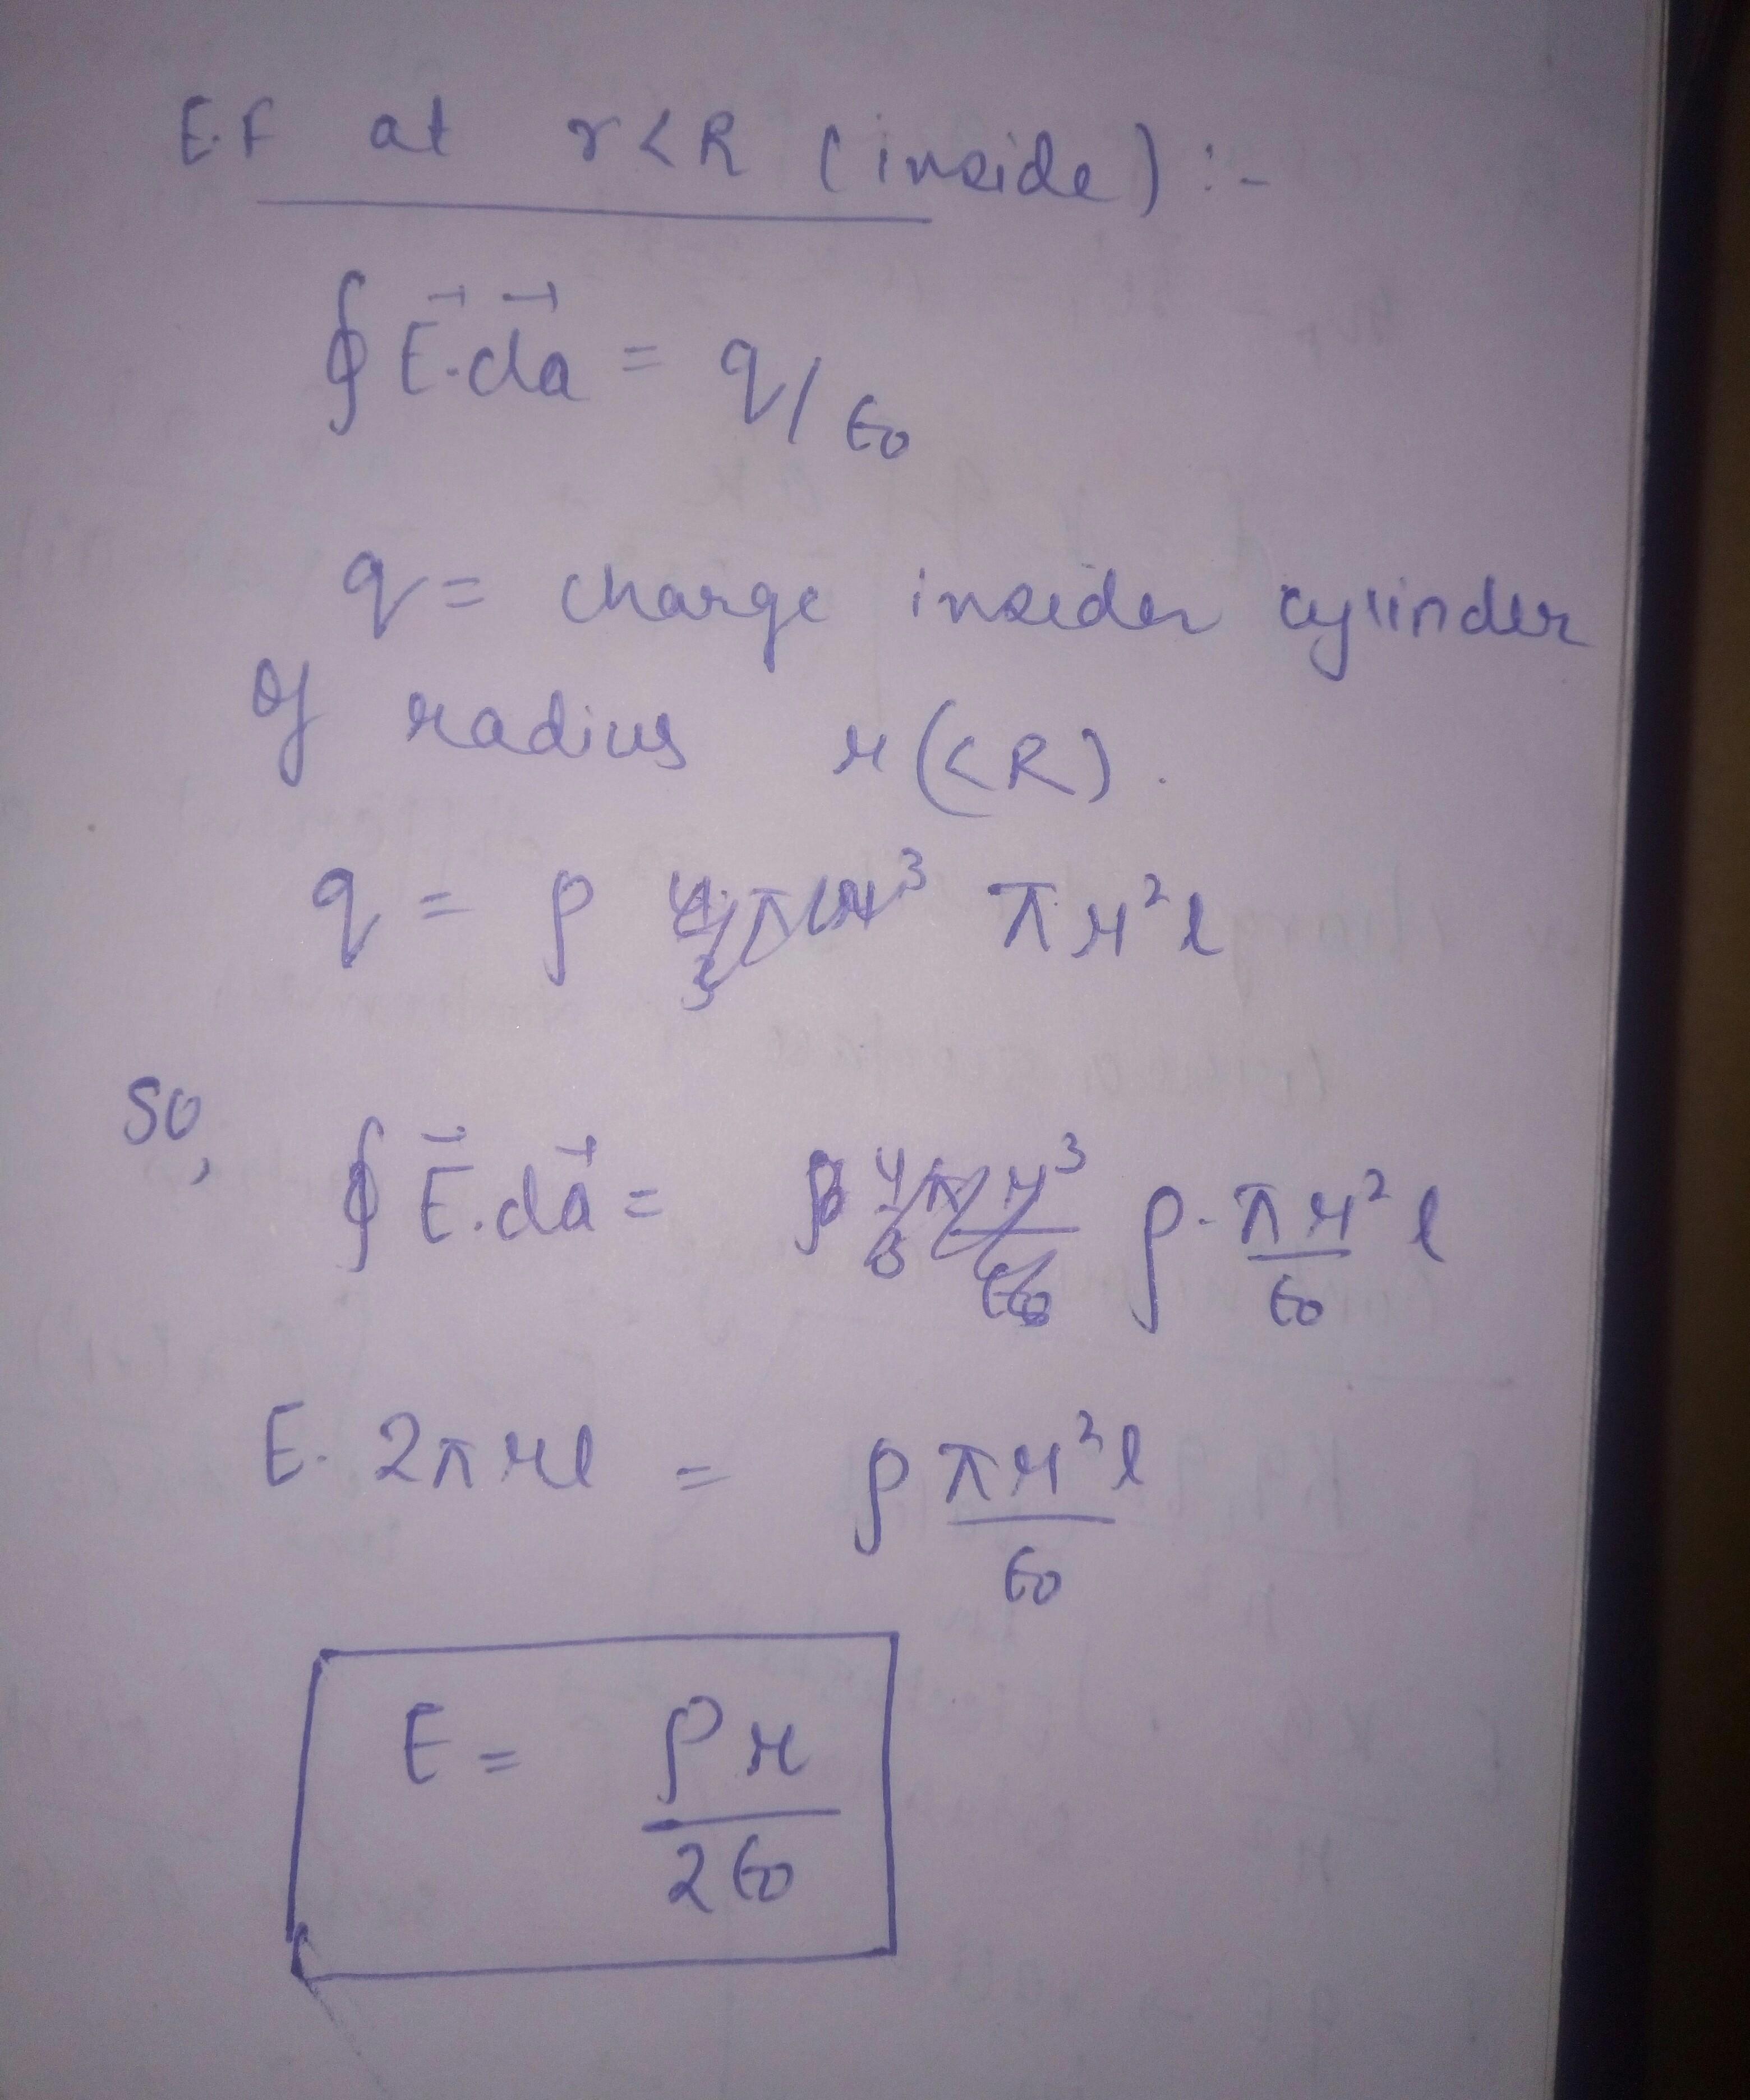 E.F at r<R (inside) :-
∮ E⃗.da⃗ = q/ϵ₀
q = charge insider cylinder
of radius r(<R).
q = ρ πr²l
So, ∮ E⃗.da⃗ = ρ. πr²l/ϵ₀
E. 2πrl = ρ πr²l/ϵ₀
E = ρr/2ϵ₀